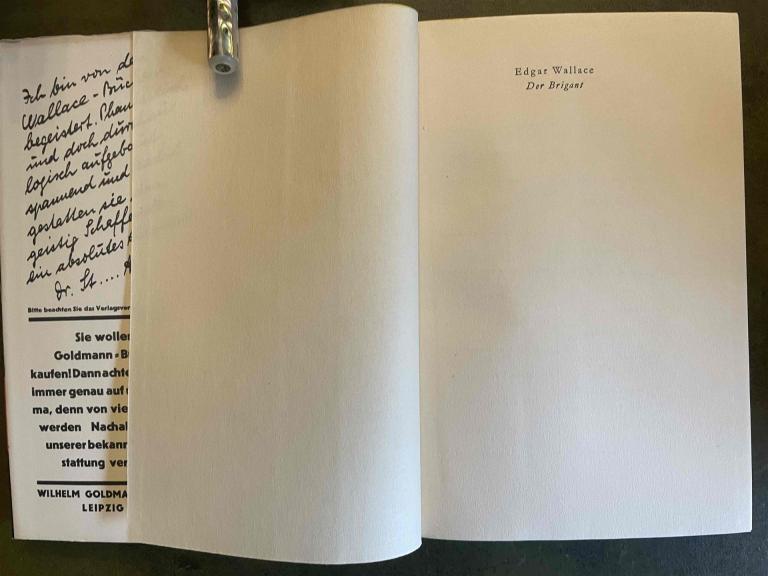 Ich bin von de
Wallace - Büc
begeistert. Phan
und doch dur
logisch aufgeba
spannend und
gestatten sie
geistig Schaffe
ein absolutes
Dr. St....
Bitte beachten Sie das Verlagsver
Sie wollen
Goldmann-B
kaufen! Dann achte
immer genau auf u
ma, denn von vie
werden Nachal
unserer bekann
stattung ver
WILHELM GOLDMA
LEIPZIG
Edgar Wallace
Der Brigant